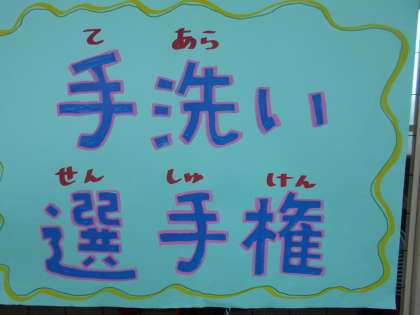 て あら
手洗い
せん しゅ けん
選手権